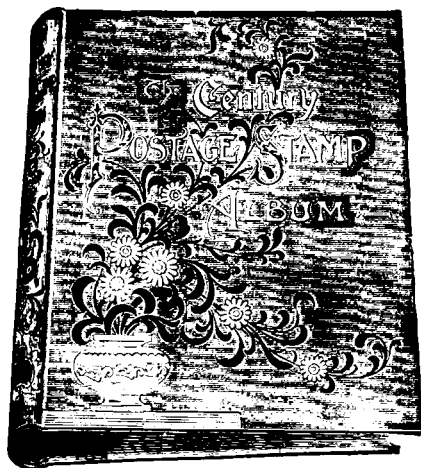 Century
Postage Stamp
Album